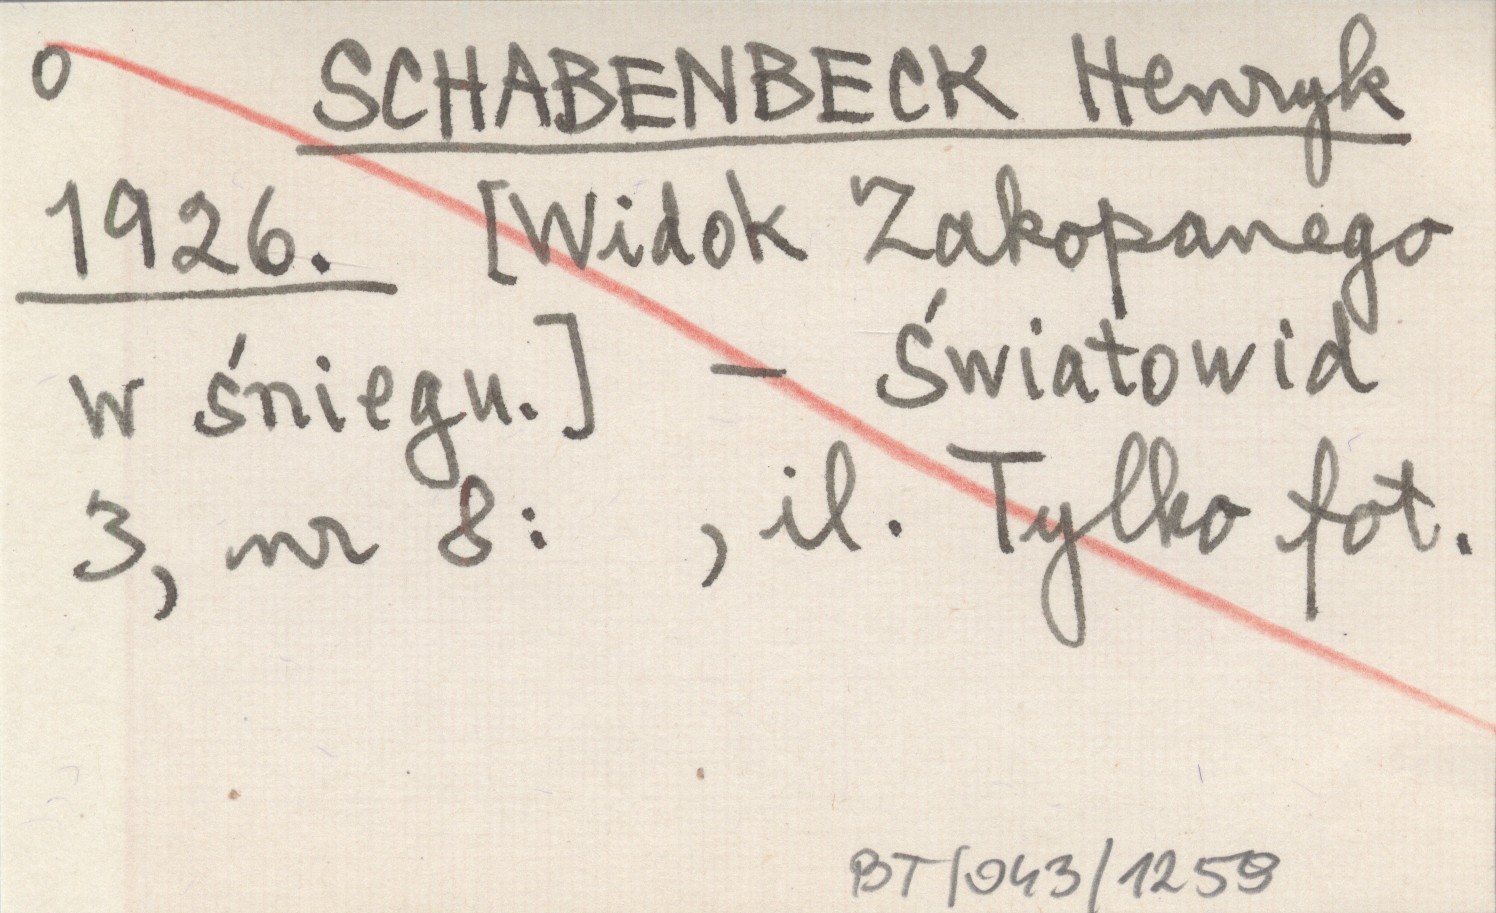 o SCHABENBECK Henryk
1926. [Widok Zakopanego
w śniegu.] – Światowid
3, nr 8: , il. Tylko fot.
BT/043/1259